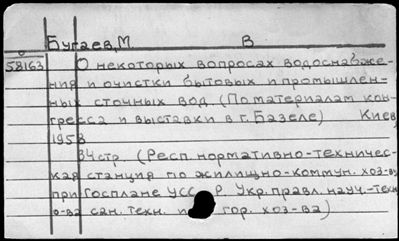 Бугаев, М. В
58163 О некоторых вопросах водоснабже-
ния и очистки бытовых и промышлен-
ных сточных вод. (По материалам кон-
гресса и выставки в г. Базеле) Киев,
1958
34 стр. (Респ. нормативно-техничес-
кая станция по жилищно-коммун. хоз-ву
при Госплане УСС Р. Укр. правл. науч.-техн
о-ва сан. техн. и гор. хоз-ва)